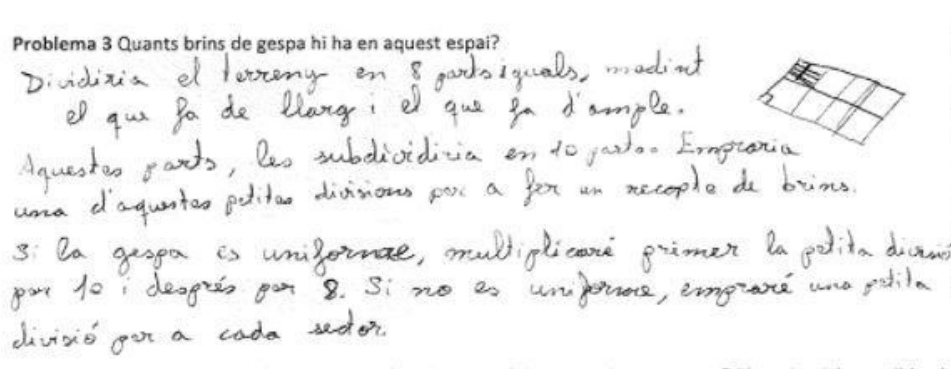 Problema 3 Quants brins de gespa hi ha en aquest espai?
Dividiria el terreny en 8 parts iguals, medint
el que fa de llarg i el que fa d'ample.
Aquestes parts, les subdividiria en 10 parts. Empraria
una d'aquestes petites divisions per a fer un recopte de brins.
Si la gespa és uniforme, multiplicaré primer la petita divisió
per 10 i després per 8. Si no es uniforme, empraré una petita
divisió per a cada sector.